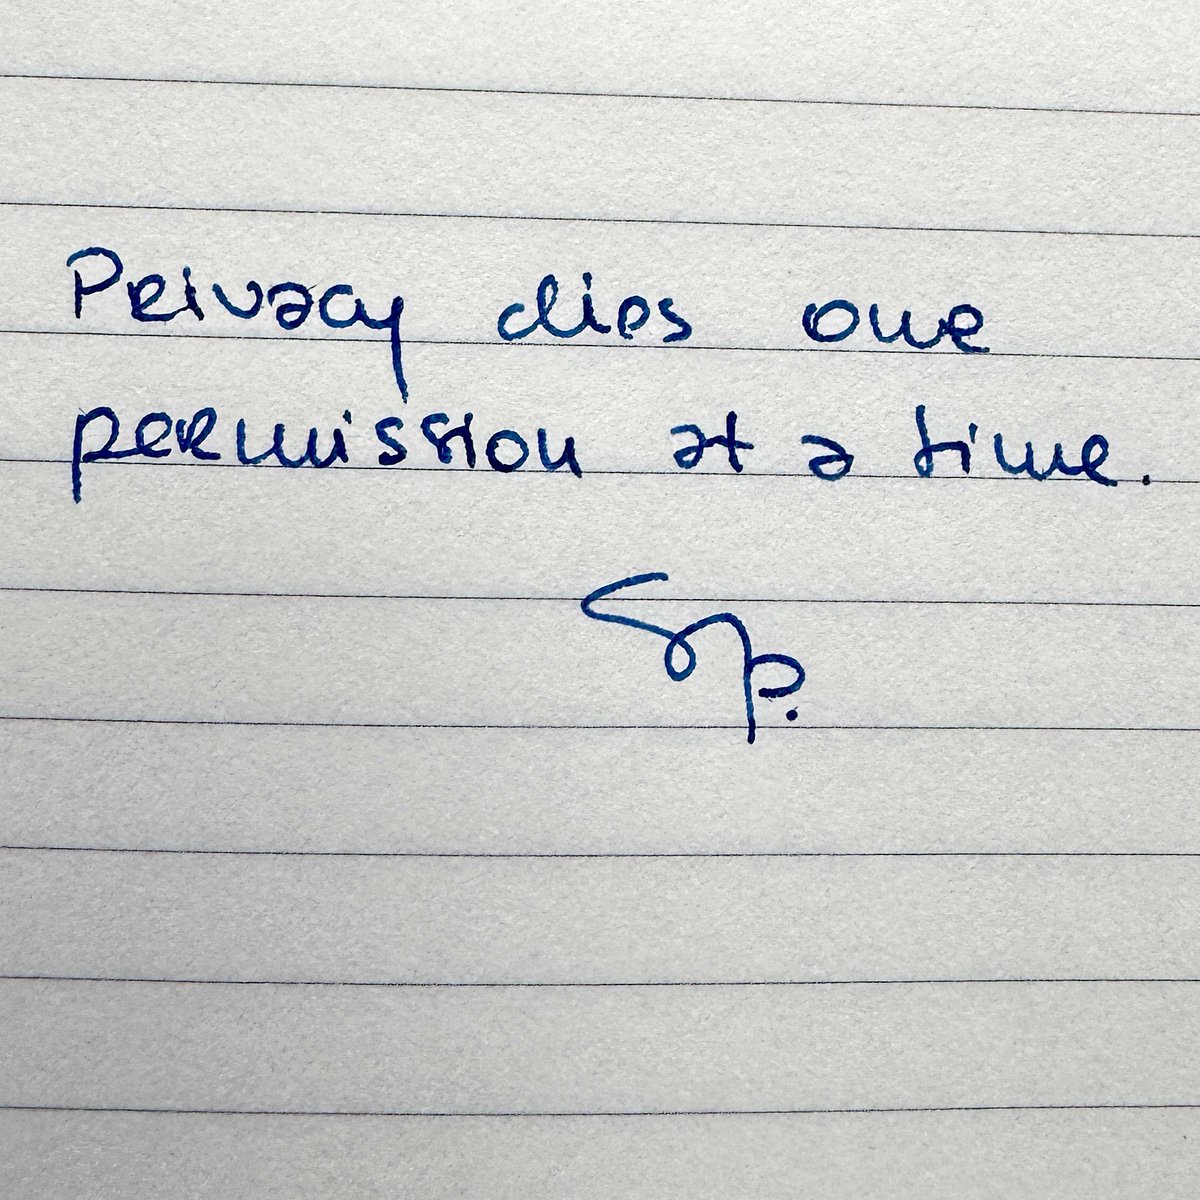 Privacy dies one
permission at a time.